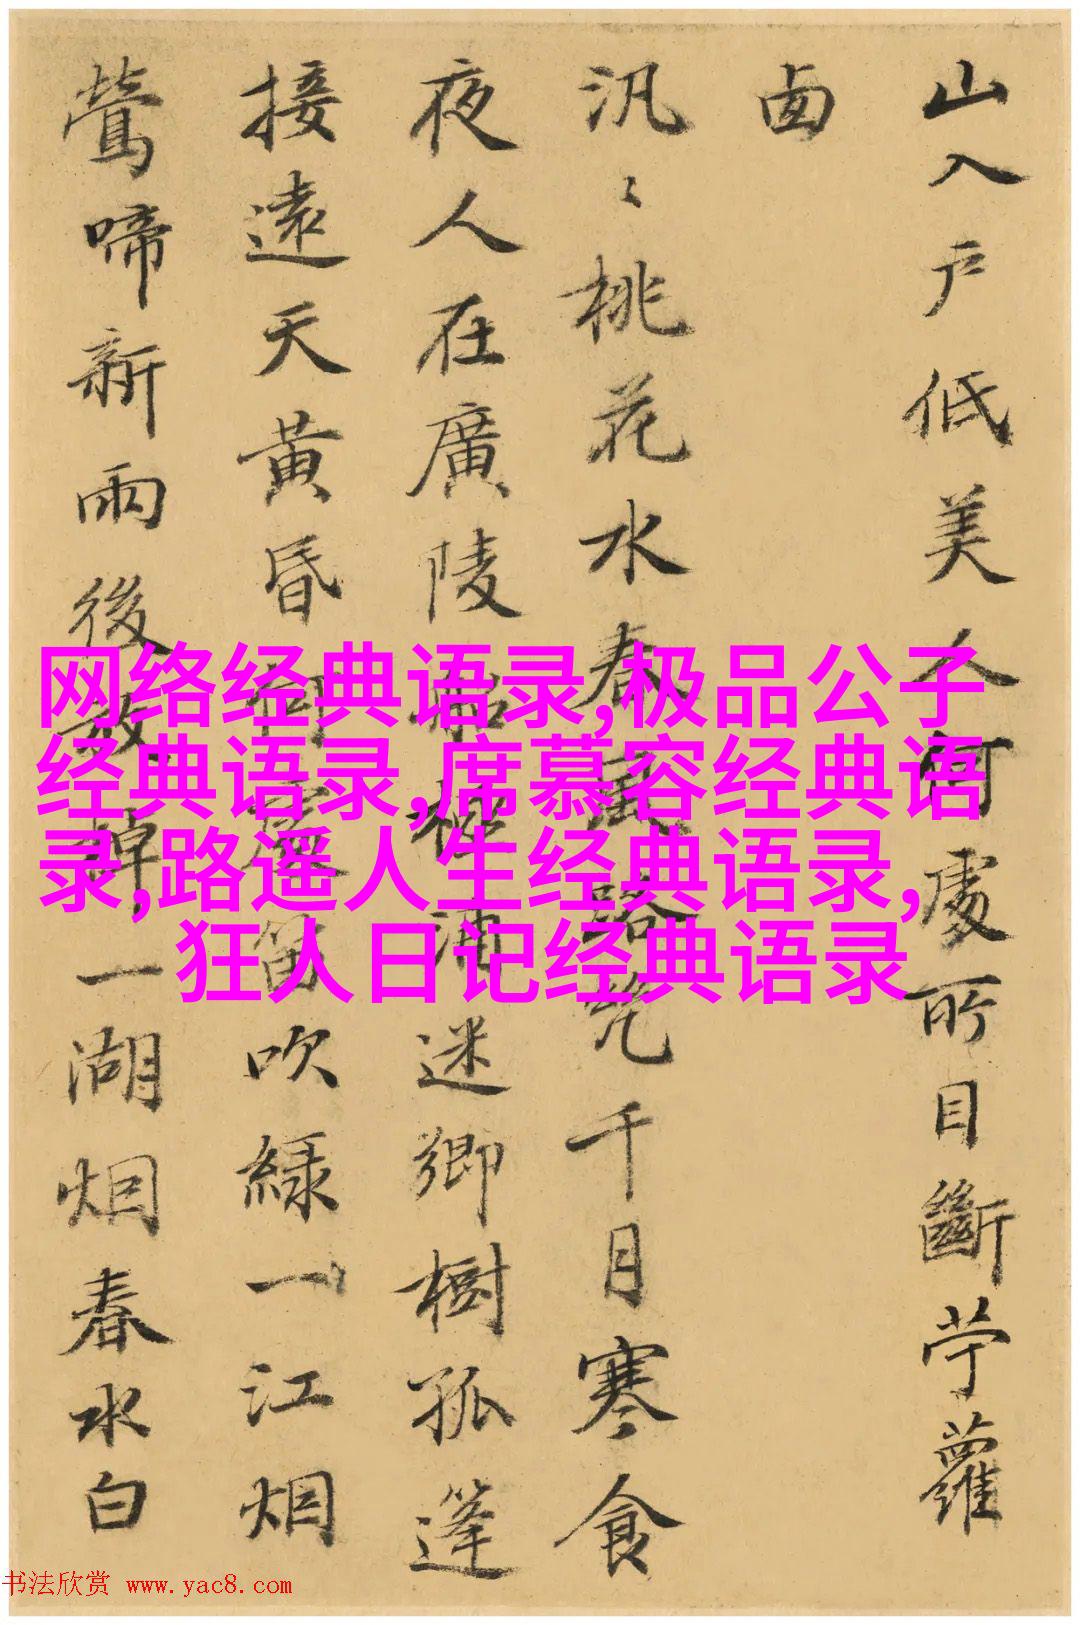 山入戶低美人何處所目斷苧蘿
汎〻桃花水春風路千月寒食
夜人在廣陵船極浦迷鄉樹孤篷
接遠天黃昏何笛吹綠一江烟
鶯啼新雨後放棹一湖烟春水白
网络经典语录,极品公子
经典语录,席慕容经典语
录,路遥人生经典语录,
狂人日记经典语录
书法欣赏 www.yac8.com